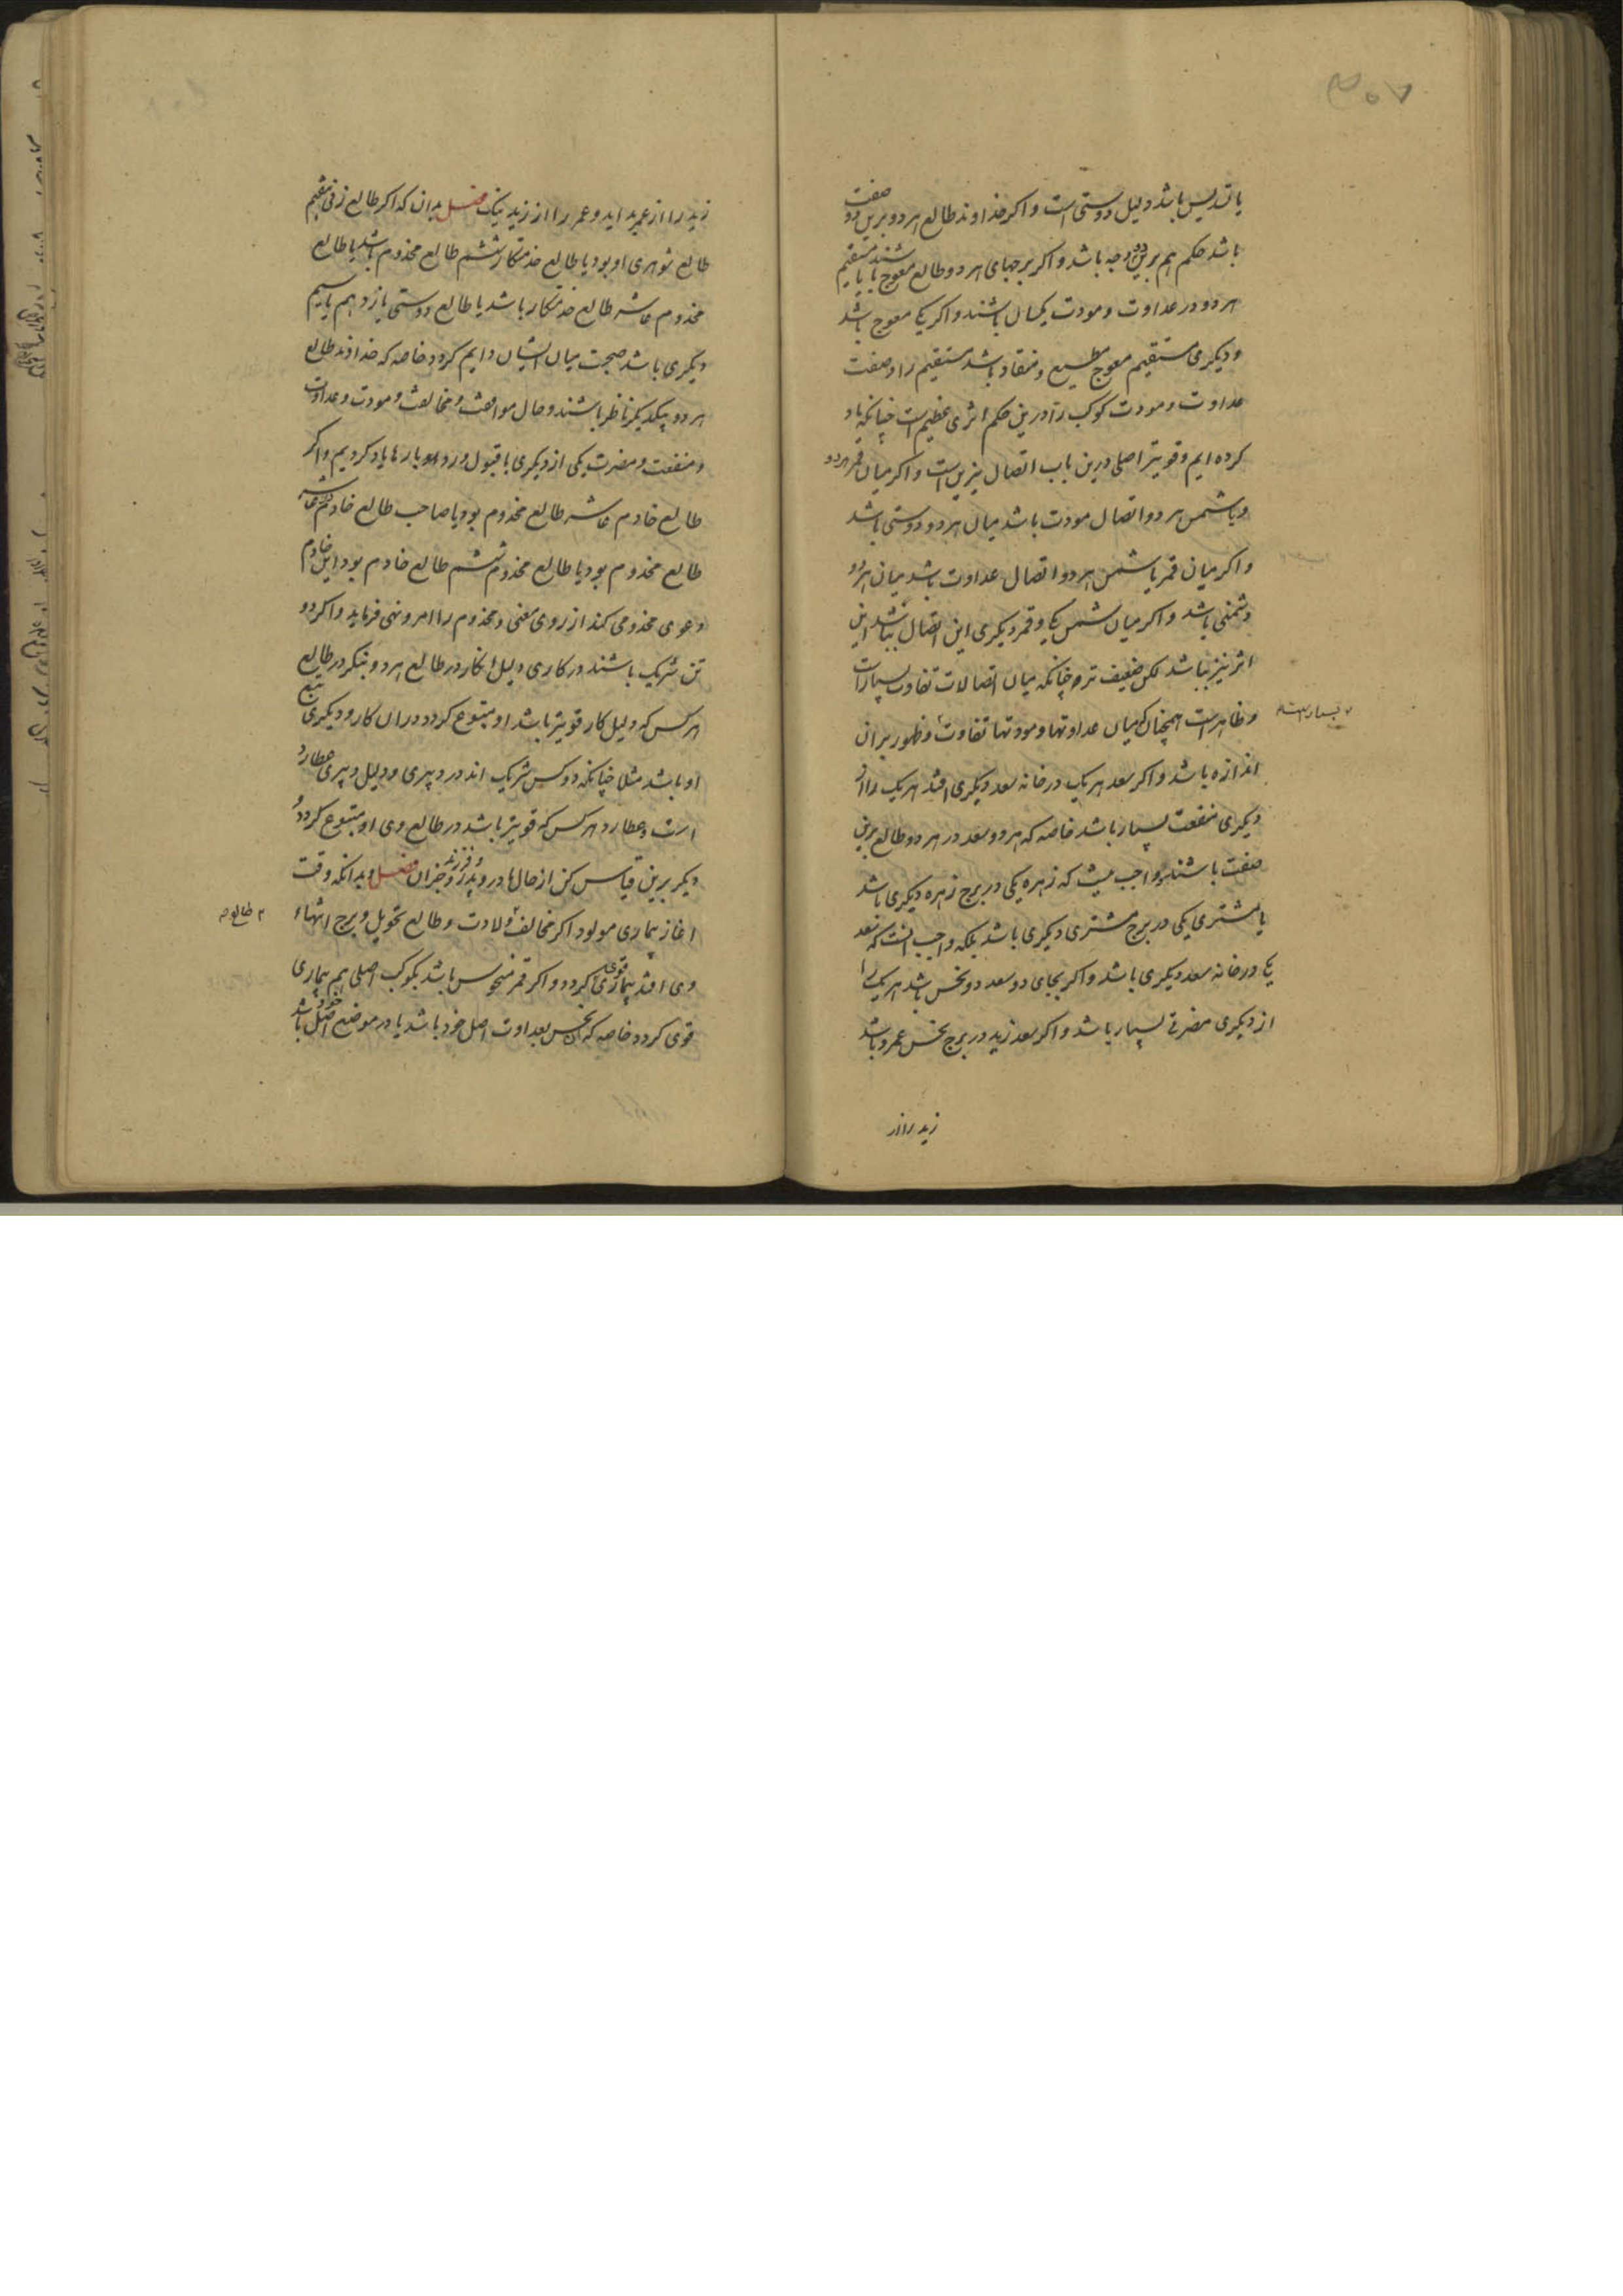 ۳۰۷
یا تسدیس باشد دلیل دوستی است و اکر خداوند طالع هر دو برین دو صفت
باشد حکم هم برین دو وجه باشد و اکر برجهای هر دو طالع معوج باشند یا مستقیم
هر دو در عداوت و مودت یکسان باشند و اکر یکی معوج باشد
و دیکری مستقیم معوج مطیع و منقاد باشد مستقیم را و صفت
عداوت و مودت کوکب را درین حکم اثری عظیم است چنانکه یاد
کرده ایم و قویتر اصلی درین باب اتصال نیرین است و اکر میان قمر هر دو
و یا شمس هر دو اتصال مودت باشد میان هر دو دوستی باشد
و اکر میان قمر یا شمس هر دو اتصال عداوت باشد میان هر دو
دشمنی باشد و اکر میان شمس یکی و قمر دیکری این اتصال باشد این
اثر نیز باشد لکن ضعیف تر و چنانکه میان اتصالات تفاوت بسیار است
و ظاهر است همچنان میان عداوتها و مودتها تفاوت و ظهور بر ان
اندازه باشد و اکر سعد هر یک در خانه سعد دیکری افتد هر یک را از
دیکری منفعت بسیار باشد خاصه که هر دو سعد در هر دو طالع برین
صفت باشند و واجب نیست که زهره یکی در برج زهره دیکری باشد
یا مشتری یکی در برج مشتری دیکری باشد بلکه واجب انست که سعد
یکی در خانه سعد دیکری باشد و اکر بجای دو سعد دو نحس باشد هر یکی را
از دیکری مضرتی بسیار باشد و اکر سعد زید در برج نحس عمرو باشد
زید را از
زید را از عمرو بد اید و عمرو را از زید نیک فصل بدان که اکر طالع زنی هفتم
طالع شوهری او بود یا طالع خدمتکار ششم طالع مخدوم باشد یا طالع
مخدوم عاشر طالع خدمتکار باشد یا طالع دوستی یازدهم یا سیم
دیکری باشد صحبت میان ایشان دایم کردد خاصه که خداوند طالع
هر دو بیکدیکر ناظر باشند و حال موافقت و مخالفت و مودت و عداوت
و منفعت و مضرت یکی از دیکری با قبول و رد بارها یاد کردیم و اکر
طالع خادم عاشر طالع مخدوم بود یا صاحب طالع خادم در عاشر
طالع مخدوم بود یا طالع مخدوم ششم طالع خادم بود این خادم
دعوی مخدومی کند از روی معنی و مخدوم را امر و نهی فرماید و اکر دو
تن شریک باشند در کاری دلیل ان کار در طالع هر دو بنکر در طالع
هر کس که دلیل کار قویتر باشد او متبوع کردد در ان کار و دیکری تبع
او باشد مثلا چنانکه دو کس شریک اند در دبیری و دلیل دبیری عطارد
است و عطارد هر کس که قویتر باشد در طالع وی او متبوع کردد و
دیکر برین قیاس کن از حالها در پدر و فرزند و جز ان فصل و بدانکه وقت
اغاز بیماری مولود اکر مخالف ولادت و طالع تحویل و برج انتهاء
۲ طالع
وی افتد بیماری قوی کردد و اکر قمر منحوس باشد بکوکب اصلی هم بیماری
قوی کردد خاصه که ان نحس بعداوت اصل خود باشد یا در موضع اصل خود باشد